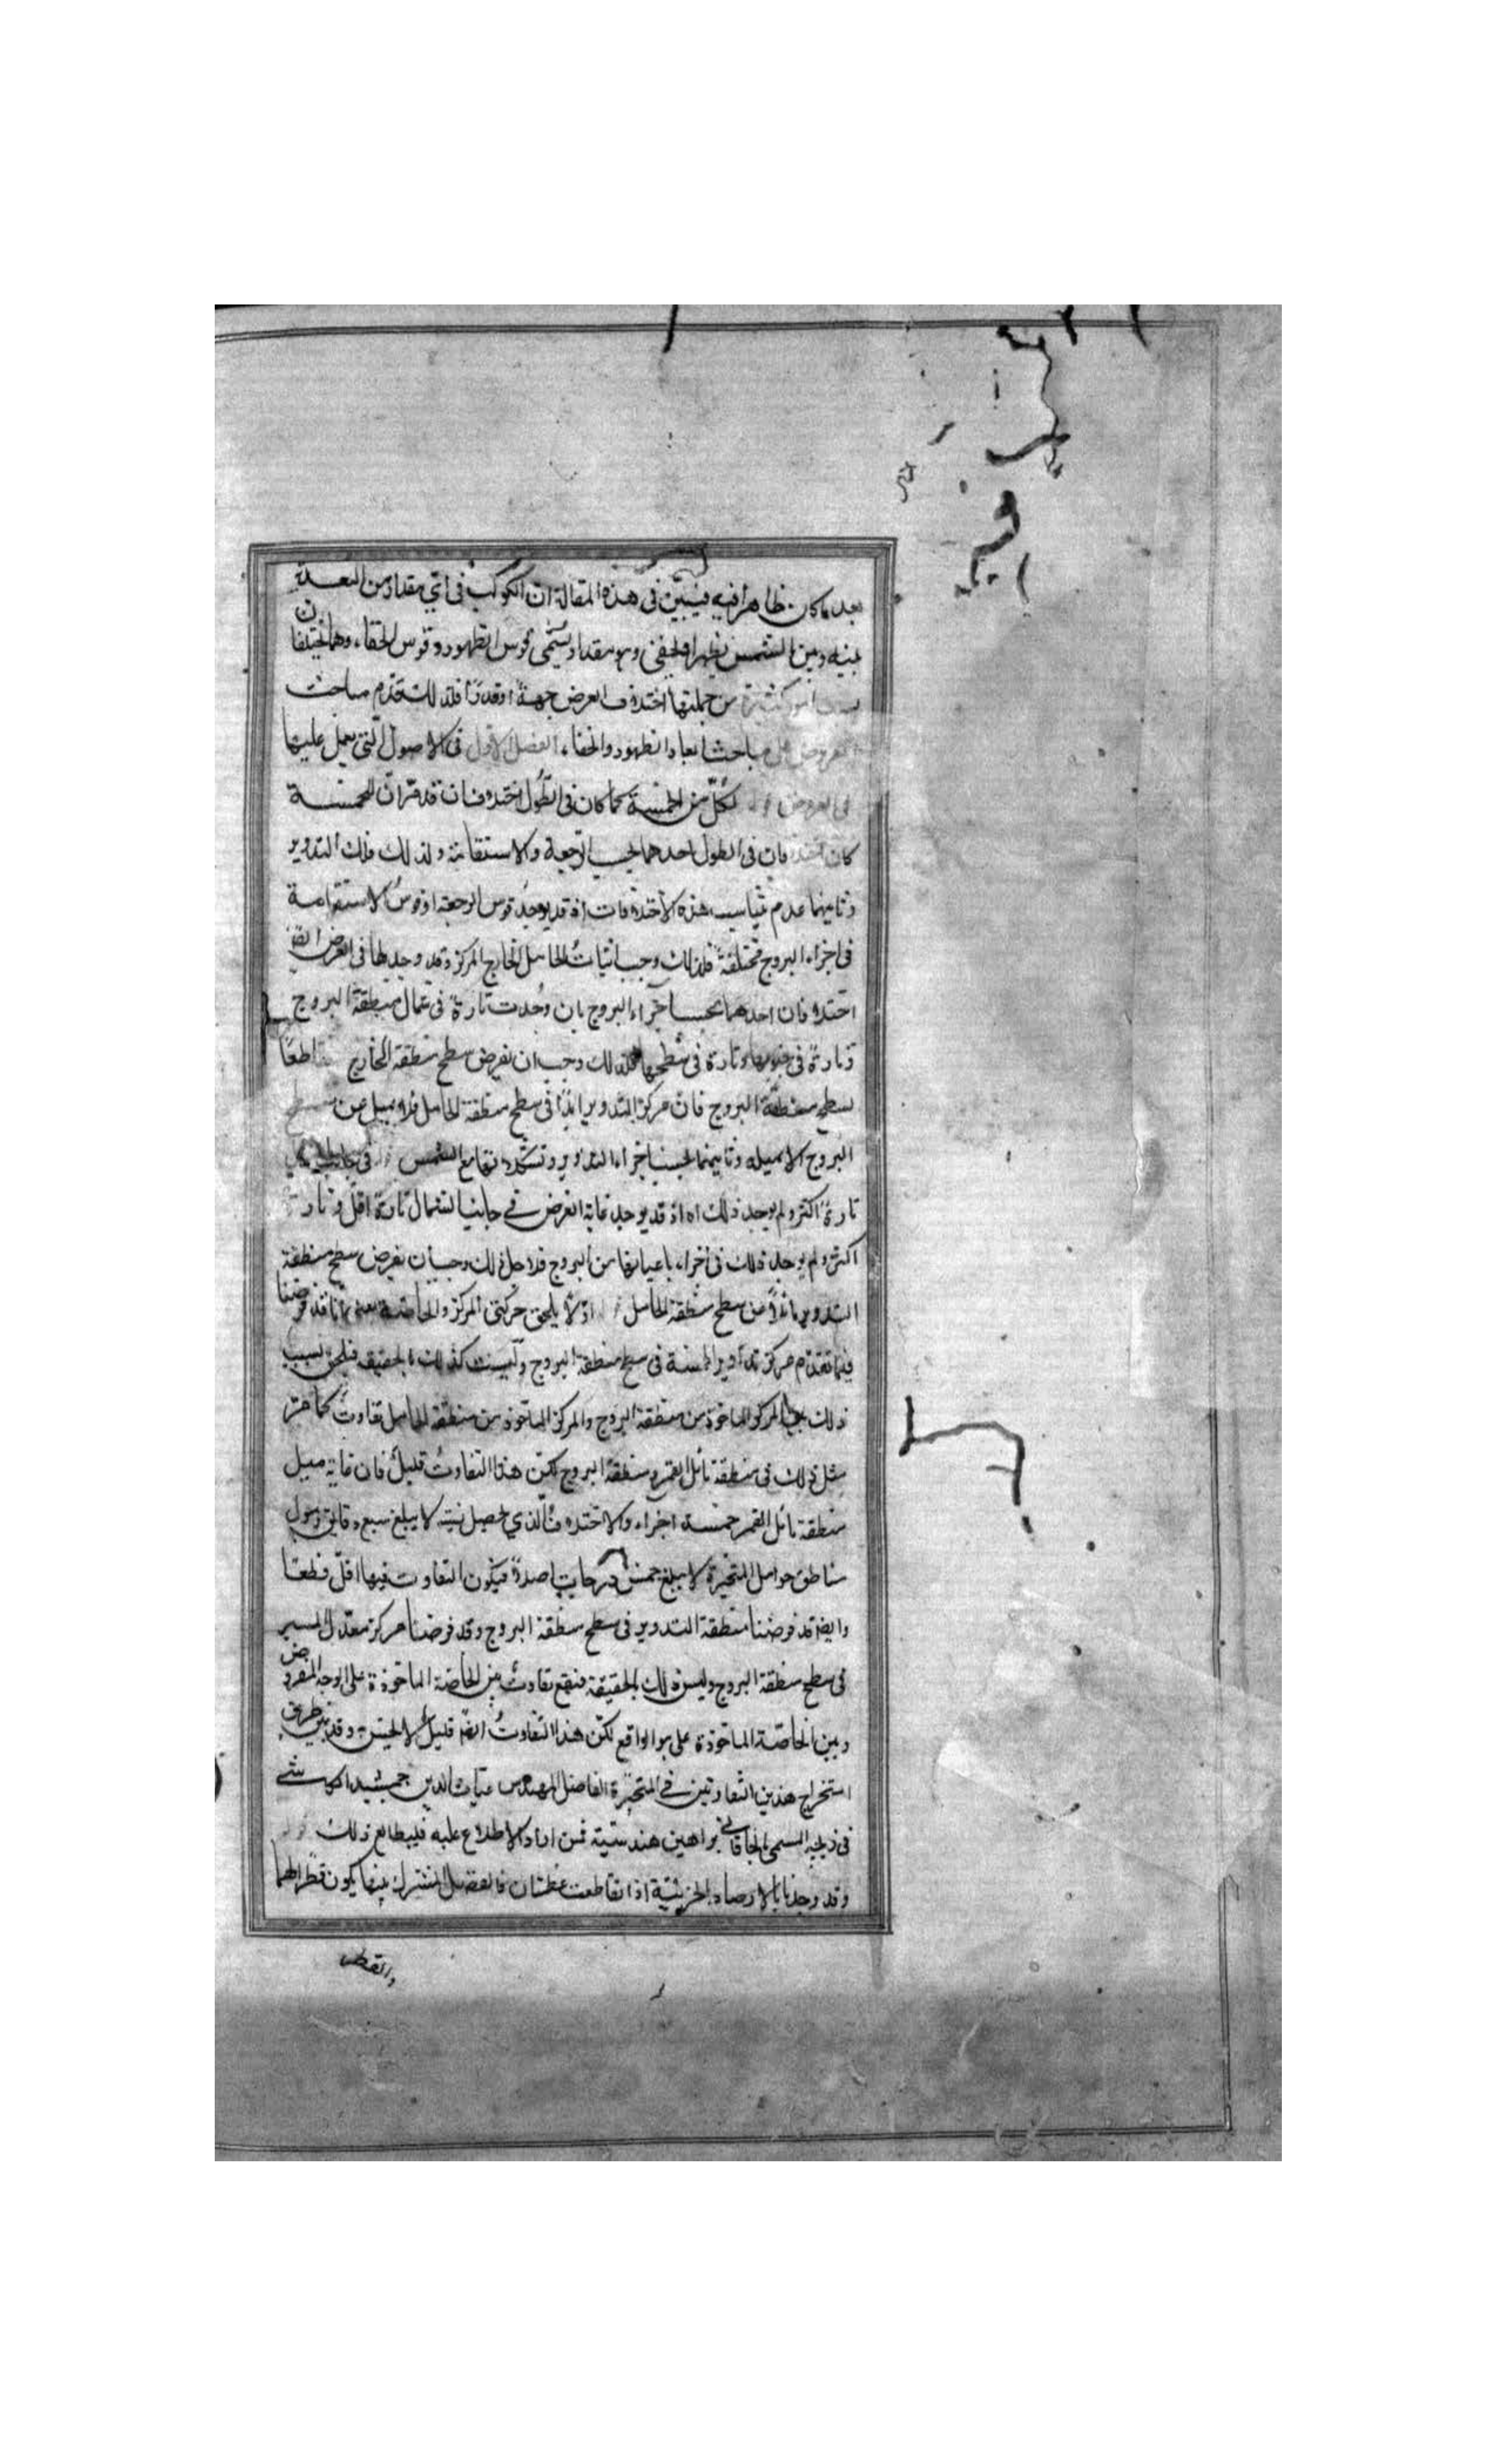 بعد ما كان ظاهرا فيه فيبين فى هذه المقالة ان الكوكب فى اى مقدار من البعد
بينه وبين الشمس يظهر او يخفى وهو مقدار يسمى قوس الظهور وقوس الخفاء وهما يختلفان
من جملتها اختلاف العرض جهة او قدرًا فلذلك تقدم مباحث
مباحث ابعاد الظهور والخفاء الفصل الاول فى الاصول التى يعمل عليها
لكل من الخمسة كما كان فى الطول اختلافان قد مر ان للخمسة
كان فى الطول احدهما بحسب الرجعة والاستقامة ولذلك فلك التدوير
وثانيهما عدم تناسب هذه الاختلافات اذ قد يوجد قوس الرجعة او قوس الاستقامة
فى اجزاء البروج مختلفة فلذلك وجب اثبات الحامل الخارج المركز وقد وجد لها فى العرض ايضا
اختلافان احدهما بحسب اجزاء البروج بان وجدت تارة فى شمال منطقة البروج
وتارة فى جنوبها وتارة فى سطحها فلذلك وجب ان نفرض سطح منطقة الخارج قاطعا
لسطح منطقة البروج فان مركز التدوير ابدًا فى سطح منطقة الحامل فلا يميل عن سطح
البروج الا بميله وثانيهما بحسب اجزاء التداوير وتشكلاتها مع الشمس
تارة اكثر ولم يوجد ذلك اذ قد يوجد غاية العرض فى جانب الشمال تارة اقل وتارة
اكثر ولم يوجد ذلك فى اجزاء باعيانها من البروج فلاجل ذلك وجب ان نفرض سطح منطقة
التدوير مائلا عن سطح منطقة الحامل يلحق حركتى المركز والخاصة انا قد فرضنا
فيما تقدم مركز تداوير الخمسة فى سطح منطقة البروج وليست كذلك بالحقيقة فيلحق بسبب
ذلك بين المركز الماخوذ من منطقة البروج والمركز الماخوذ من منطقة الحامل تفاوت كما مر
مثل ذلك فى منطقة مائل القمر ومنطقة البروج لكن هذا التفاوت قليل فان غاية ميل
منطقة مائل القمر خمسة اجزاء والاختلاف الذي يحصل منه لا يبلغ سبع دقائق وميول
مناطق حوامل المتحيرة لا يبلغ خمس درجات اصلاً فيكون التفاوت فيها اقل قطعا
وايضا قد فرضنا منطقة التدوير فى سطح منطقة البروج وقد فرضنا مركز معدل المسير
فى سطح منطقة البروج وليس ذلك بالحقيقة فيقع تفاوت بين الخاصة الماخوذة على الوجه المفروض
وبين الخاصة الماخوذة على ما هو الواقع لكن هذا التفاوت ايضا قليل لا يحس وقد بين طريق
استخراج هذين التفاوتين فى المتحيرة الفاضل المهندس غياث الدين جمشيد الكاشى
فى زيجه المسمى بالخاقانى ببراهين هندسية فمن اراد الاطلاع عليه فليطالع ذلك
وقد وجدنا بالارصاد الجزئية اذا تقاطعت عظمتان فالفصل المشترك بينهما يكون قطرا لهما
والقطر